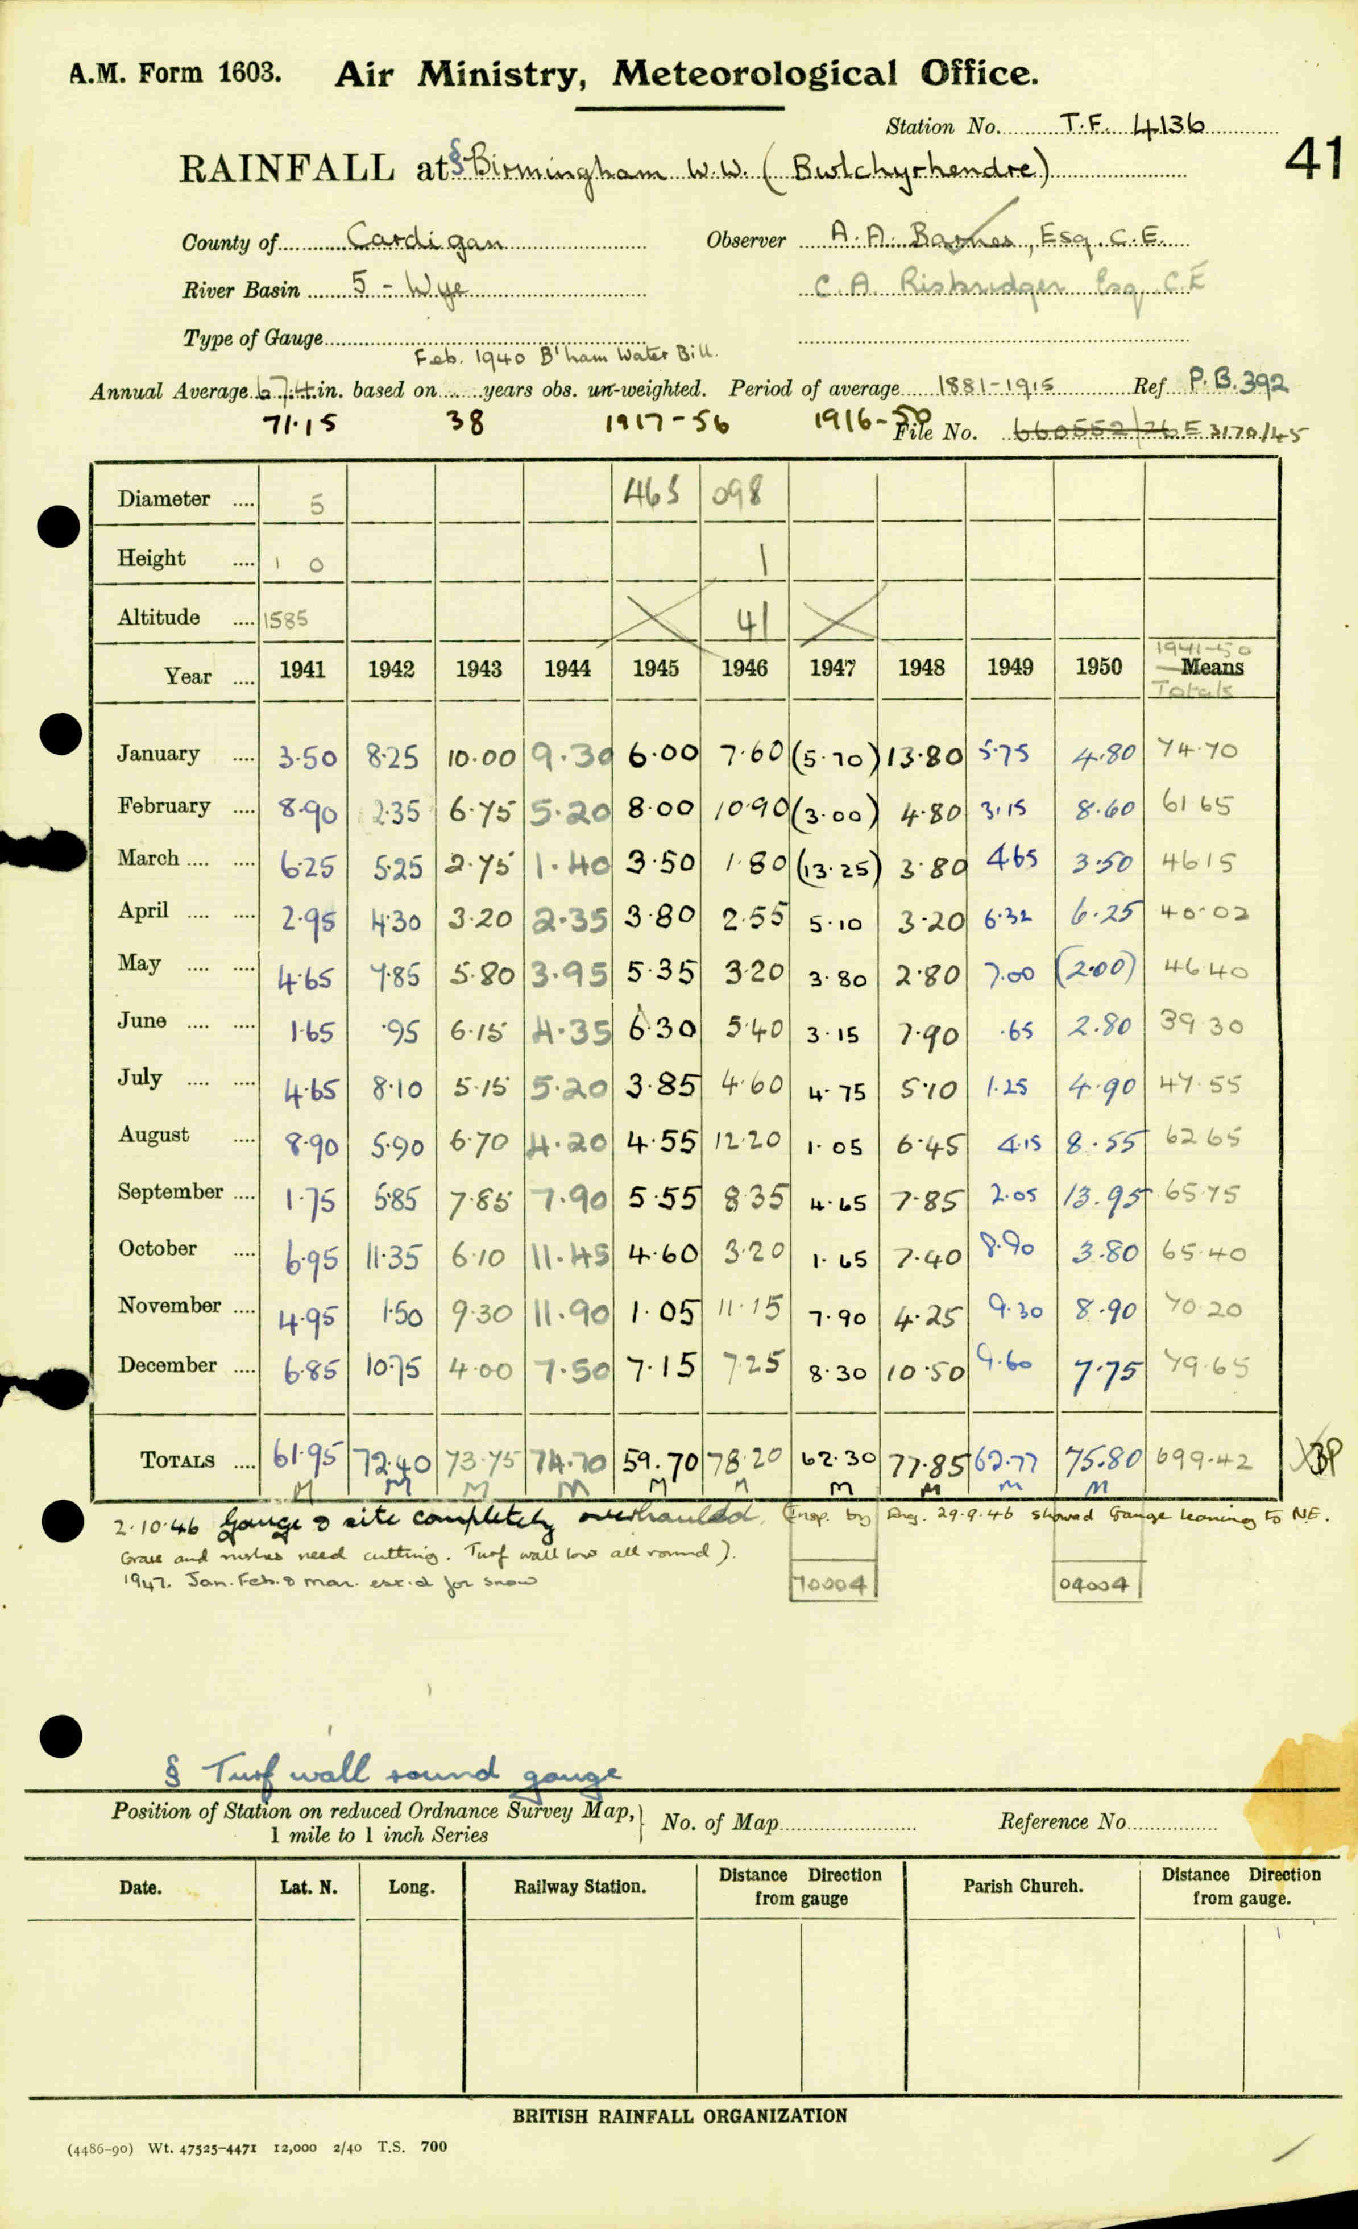 A.M. Form 1603. Air Ministry, Meteorological Office.
Station No. T.F. 4136
41
RAINFALL at § Birmingham W.W. (Bwlchyrhendre)
County of Cardigan Observer A.A. Barnes, Esq. C.E.
River Basin 5 - Wye C.A. Risbridger Esq C.E
Type of Gauge
Feb. 1940 B'ham Water Bill.
Annual Average 67.4 in. based on years obs. un-weighted. Period of average 1881-1915 Ref P.B. 392
71.15 38 1917-56 1916-50 File No. 660552/26 E 3170/45
Diameter 5 463 098
Height 1 0 1
Altitude 1585 41
1941-50
Year 1941 1942 1943 1944 1945 1946 1947 1948 1949 1950 Means
Totals
January 3.50 8.25 10.00 9.30 6.00 7.60 (5.70) 13.80 5.75 4.80 74.70
February 8.90 2.35 6.75 5.20 8.00 10.90 (3.00) 4.80 3.15 8.60 61 65
March 6.25 5.25 2.75 1.40 3.50 1.80 (13.25) 3.80 4.65 3.50 46 15
April 2.95 4.30 3.20 2.35 3.80 2.55 5.10 3.20 6.32 6.25 40.02
May 4.65 7.85 5.80 3.95 5.35 3.20 3.80 2.80 7.00 (2.00) 46.40
June 1.65 .95 6.15 4.35 6.30 5.40 3.15 7.90 .65 2.80 39 30
July 4.65 8.10 5.15 5.20 3.85 4.60 4.75 5.10 1.25 4.90 47.55
August 8.90 5.90 6.70 4.20 4.55 12.20 1.05 6.45 4.15 8.55 62 65
September 1.75 5.85 7.85 7.90 5.55 8.35 4.65 7.85 2.05 13.95 65.75
October 6.95 11.35 6.10 11.45 4.60 3.20 1.65 7.40 8.90 3.80 65.40
November 4.95 1.50 9.30 11.90 1.05 11.15 7.90 4.25 9.30 8.90 70.20
December 6.85 10.75 4.00 7.50 7.15 7.25 8.30 10.50 9.60 7.75 79.65
TOTALS 61.95 72.40 73.75 74.70 59.70 78.20 62.30 77.85 62.77 75.80 699.42
M M M M M M M M M M
2.10.46 Gauge & site completely overhauled. (Insp. by Eng. 29.9.46 showed Gauge leaning to NE.
Grass and rushes need cutting. Turf wall low all round).
1947. Jan. Feb. & Mar. est.d for snow 70004 04004
§ Turf wall round gauge
Position of Station on reduced Ordnance Survey Map, No. of Map Reference No
1 mile to 1 inch Series
Date. Lat. N. Long. Railway Station. Distance Direction from gauge Parish Church. Distance Direction from gauge.
BRITISH RAINFALL ORGANIZATION
(4486-90) Wt. 47525-4471 12,000 2/40 T.S. 700